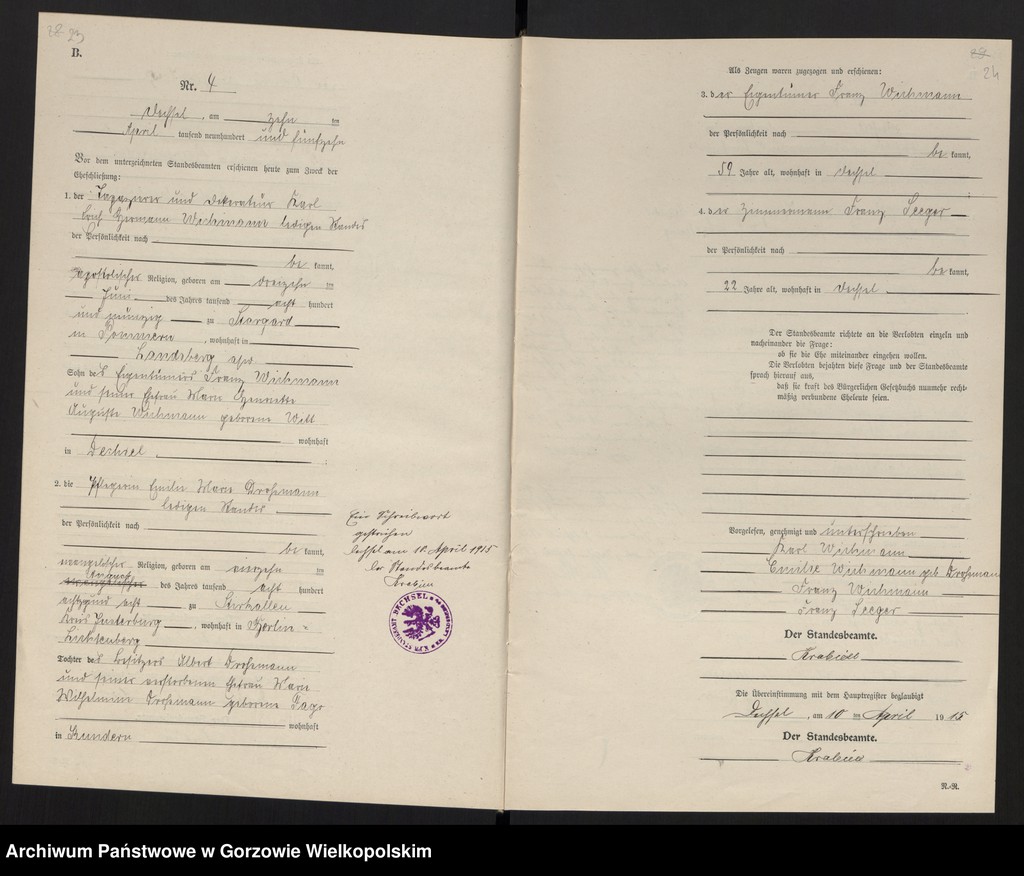 28. 23
B.
Nr. 4
Dechsel, am zehn ten
April tausend neunhundert und fünfzehn
Vor dem unterzeichneten Standesbeamten erschienen heute zum Zweck der
Eheschließung:
1. der Tapezierer und Dekorateur Karl
Erich Hermann Wichmann ledigen Standes
der Persönlichkeit nach
be kannt,
apostolischer Religion, geboren am dreizehn ten
Juni des Jahres tausend acht hundert
und neunzig zu Stargard
in Pommern, wohnhaft in
Landsberg a/W.
Sohn des Eigentümers Franz Wichmann
und seiner Ehefrau Marie Henriette
Auguste Wichmann geborene Witt
wohnhaft
in Dechsel.
2. die Pflegerin Emilie Marie Drohsmann
ledigen Standes
der Persönlichkeit nach
be kannt,
evangelischer Religion, geboren am vierzehn ten
des Jahres tausend acht hundert
achtzig und acht zu
Kreis Insterburg, wohnhaft in Berlin-
Lichtenberg
Tochter des Besitzers Albert Drohsmann
und seiner verstorbenen Ehefrau Marie
Wilhelmine Drohsmann geborene
wohnhaft
in
Ein Schreibwort
gestrichen
Dechsel am 10. April 1915
Der Standesbeamte
DECHSEL
24
Als Zeugen waren zugezogen und erschienen:
3. der Eigentümer Franz Wichmann
der Persönlichkeit nach
be kannt,
59 Jahre alt, wohnhaft in Dechsel
4. der Zimmermann Franz Seeger
der Persönlichkeit nach
be kannt,
22 Jahre alt, wohnhaft in Dechsel
Der Standesbeamte richtete an die Verlobten einzeln und
nacheinander die Frage:
ob sie die Ehe miteinander eingehen wollen.
Die Verlobten bejahten diese Frage und der Standesbeamte
sprach hierauf aus,
daß sie kraft des Bürgerlichen Gesetzbuchs nunmehr recht-
mäßig verbundene Eheleute seien.
Vorgelesen, genehmigt und unterschrieben
Karl Wichmann
Emilie Wichmann geb. Drohsmann
Franz Wichmann
Franz Seeger
Der Standesbeamte.
Die Übereinstimmung mit dem Hauptregister beglaubigt
Dechsel, am 10 ten April 1915
Der Standesbeamte.
N.-R.
Archiwum Państwowe w Gorzowie Wielkopolskim